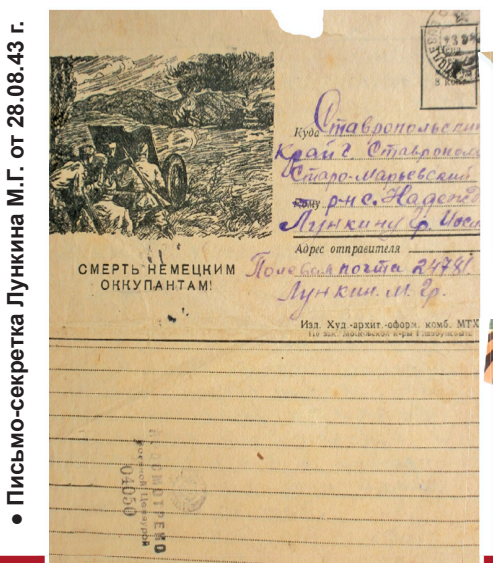 ● Письмо-секретка Лункина М.Г. от 28.08.43 г.
8 коп.
СМЕРТЬ НЕМЕЦКИМ
ОККУПАНТАМ!
Куда Ставропольский
край г. Ставрополь
Старо-Марьевский
Кому р-н с. Надежд
Лункину Ф.
Адрес отправителя
Полевая почта 24781
Лункин. М. Гр.
Изд. Худ.-архит.-оформ. комб. МТХ
ПРОСМОТРЕНО
Военной Цензурой
04050